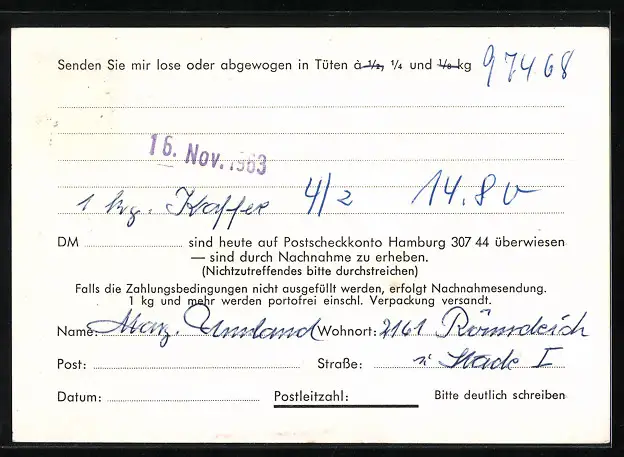 Senden Sie mir lose oder abgewogen in Tüten à ½, ¼ und ⅛ kg 97468
16. Nov. 1963
1 kg. Kaffee 4/2 14.80
DM sind heute auf Postscheckkonto Hamburg 307 44 überwiesen
— sind durch Nachnahme zu erheben.
(Nichtzutreffendes bitte durchstreichen)
Falls die Zahlungsbedingungen nicht ausgefüllt werden, erfolgt Nachnahmesendung.
1 kg und mehr werden portofrei einschl. Verpackung versandt.
Name: Umland Wohnort: 2161
Post: Straße: Stade I
Datum: Postleitzahl: Bitte deutlich schreiben